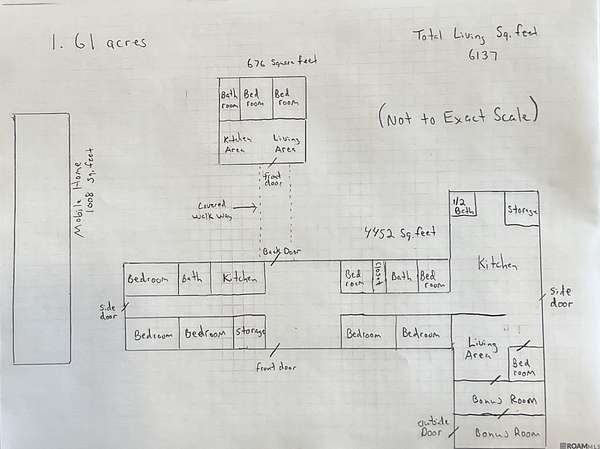 1.61 acres
Total Living Sq.feet
6137
676 Square feet
Bath
room
Bed
room
Bed
room
(Not to Exact Scale)
Kitchen
Area
Living
Area
Mobile Home
1008 Sq.feet
front
door
Covered
walk way
4452 Sq.feet
1/2
Bath
Storage
Kitchen
Back Door
Bedroom
Bath
Kitchen
Bed
room
Closet
Bath
Bed
room
side
door
side
door
Bedroom
Bedroom
Storage
Bedroom
Bedroom
Living
Area
Bed
room
front door
Bonus Room
outside
Door
Bonus Room
ROAMMLS